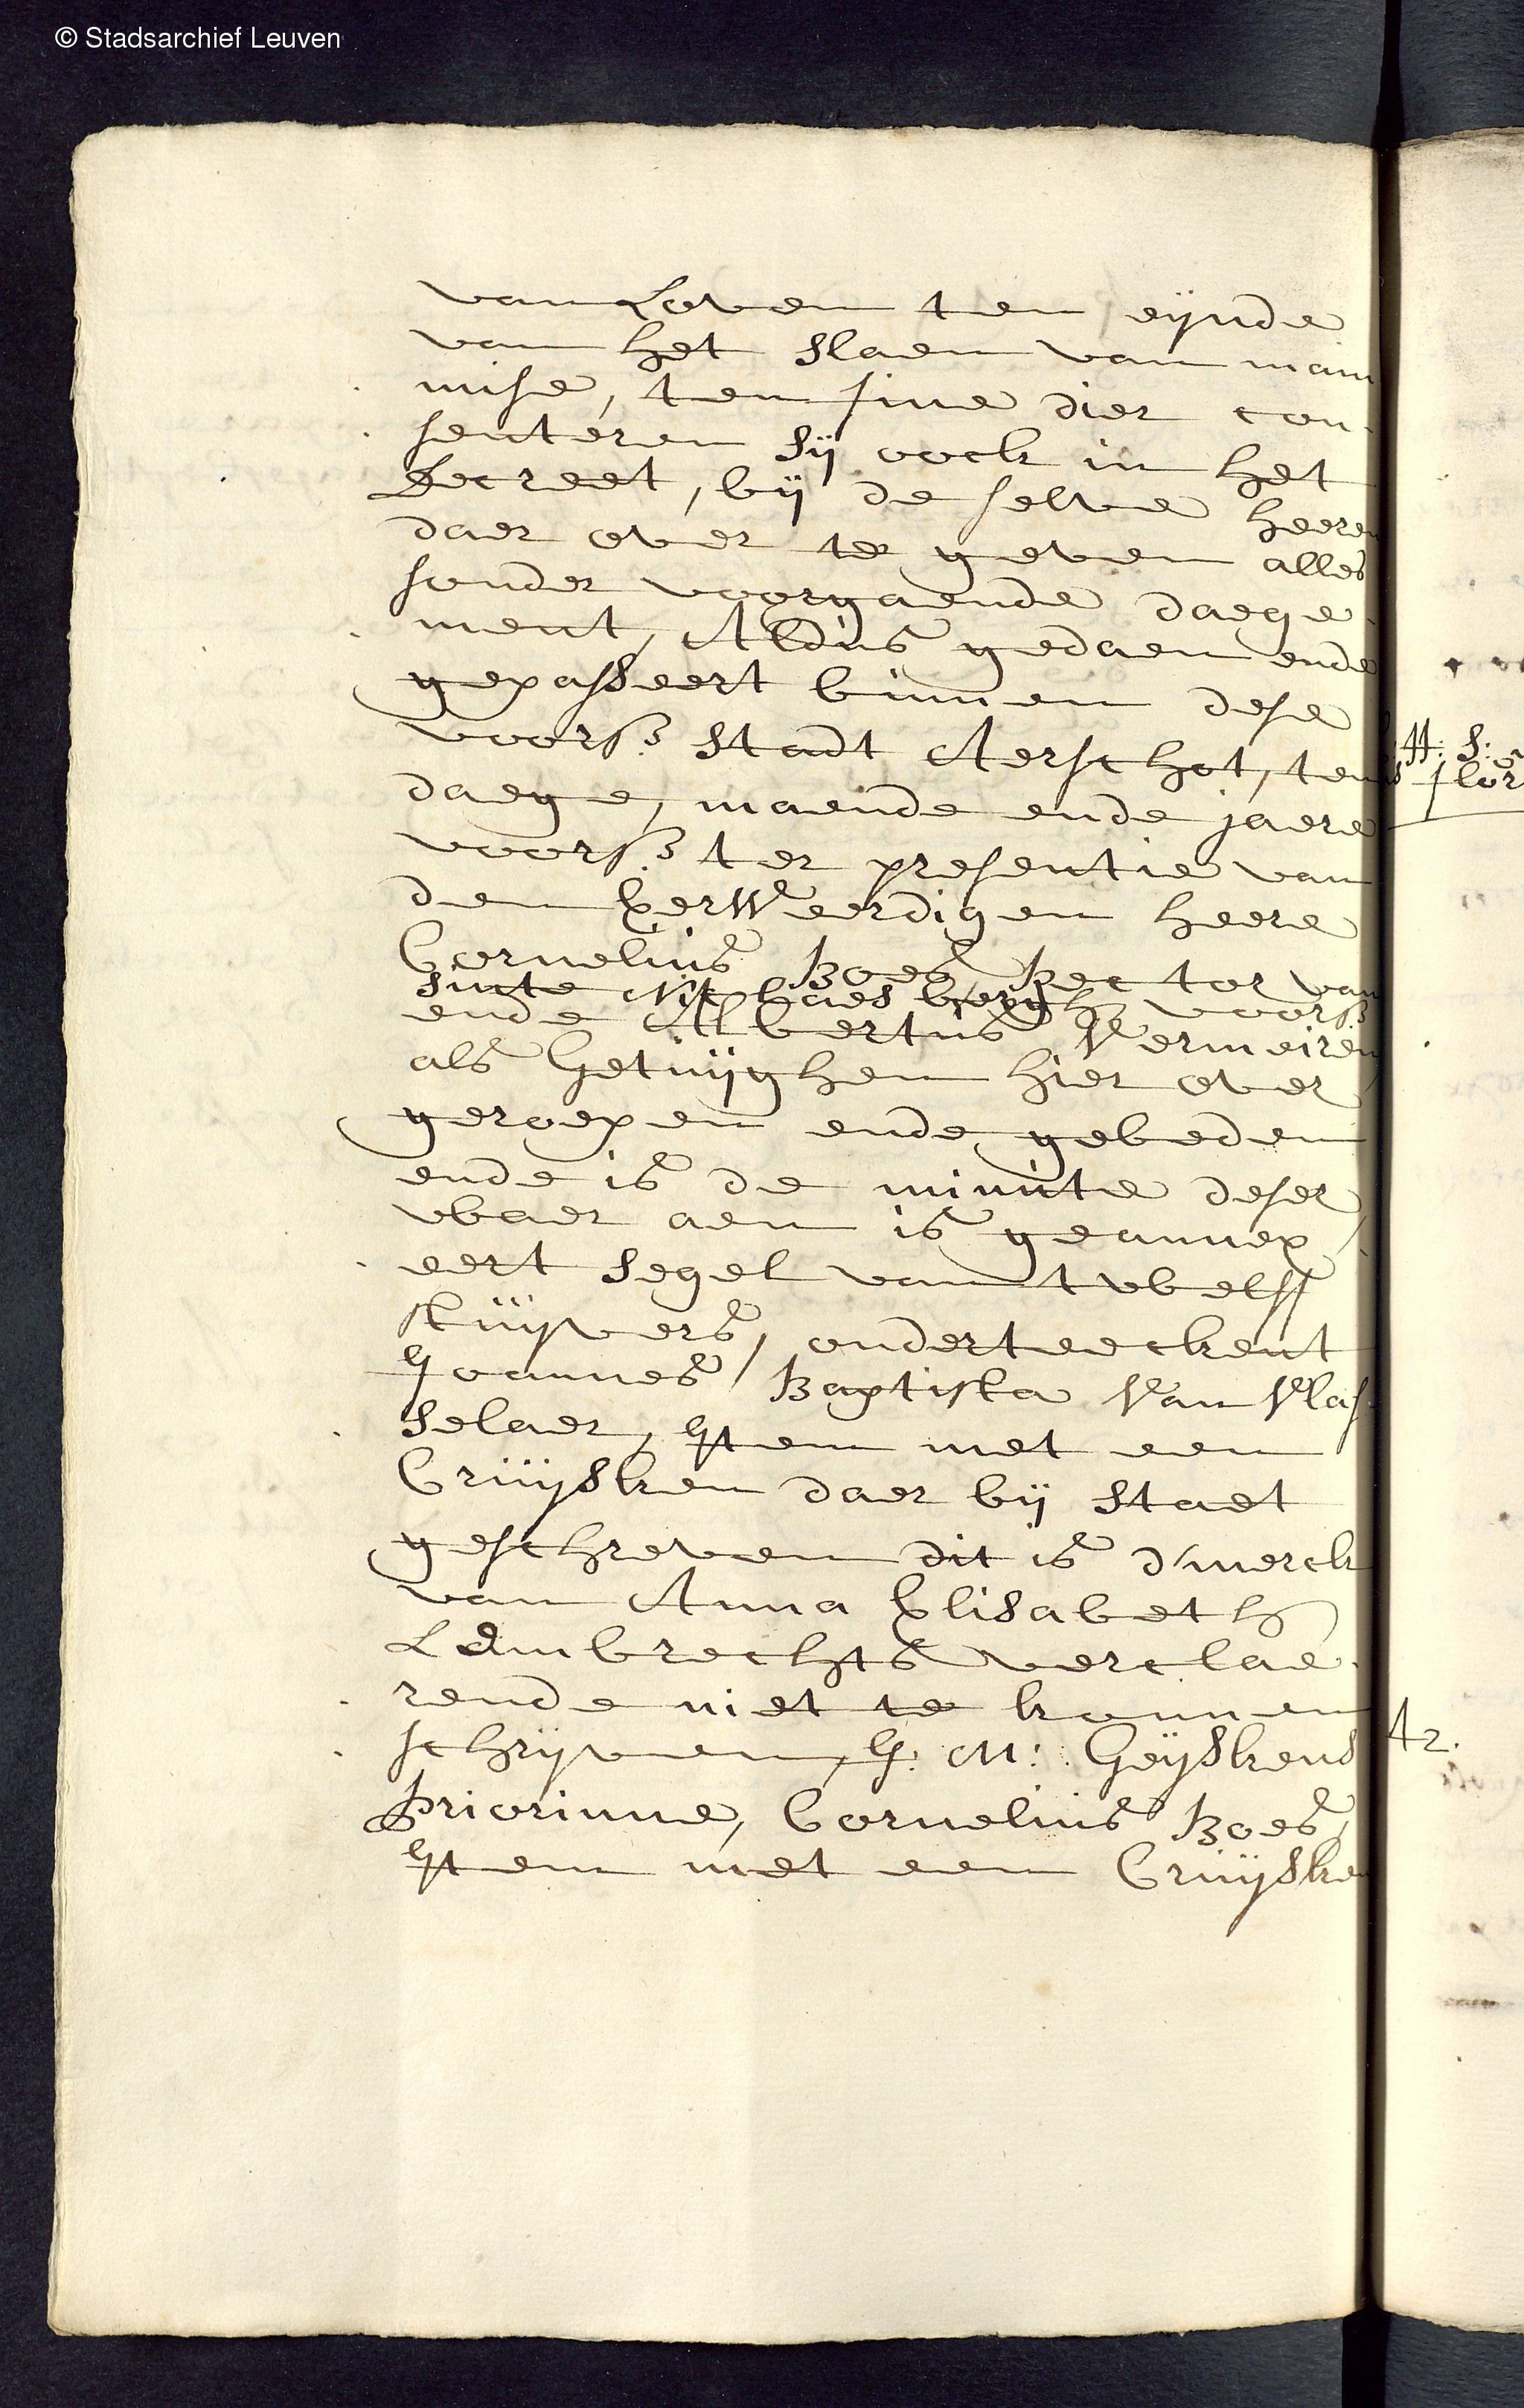 © Stadsarchief Leuven
van Loven ten eijnde
van het slaen van main
mise, ten fine dier con-
senteren sij oock in het
Decreet, bij de selve heeren
daer over te geven alles
sonder voorgaende daege-
ment, Aldus gedaen ende
gepasseert binnen dese
voors. stadt Aerschot, ten
daege, maende ende jaere
voors. ter presentie van
den Eerweerdigen heere
Cornelius Boes Rector van
sinte Niclaes bergh voors.
ende Albertus Vermeiren
als Getuijghen hier over
geroepen ende gebeden
ende is de minute deser
waer aen is geannex-
eert segel van twelff
stuijvers, onderteeckent
Joannes Baptista Van Vlas-
selaer, Item met een
Cruijsken daer bij staet
geschreven dit is d'merck
van Anna Elisabeth
Lembrechts verclae-
rende niet te konnen
schrijven, J: M: Geijskens
Priorinne, Cornelius Boes,
Item met een Cruijsken